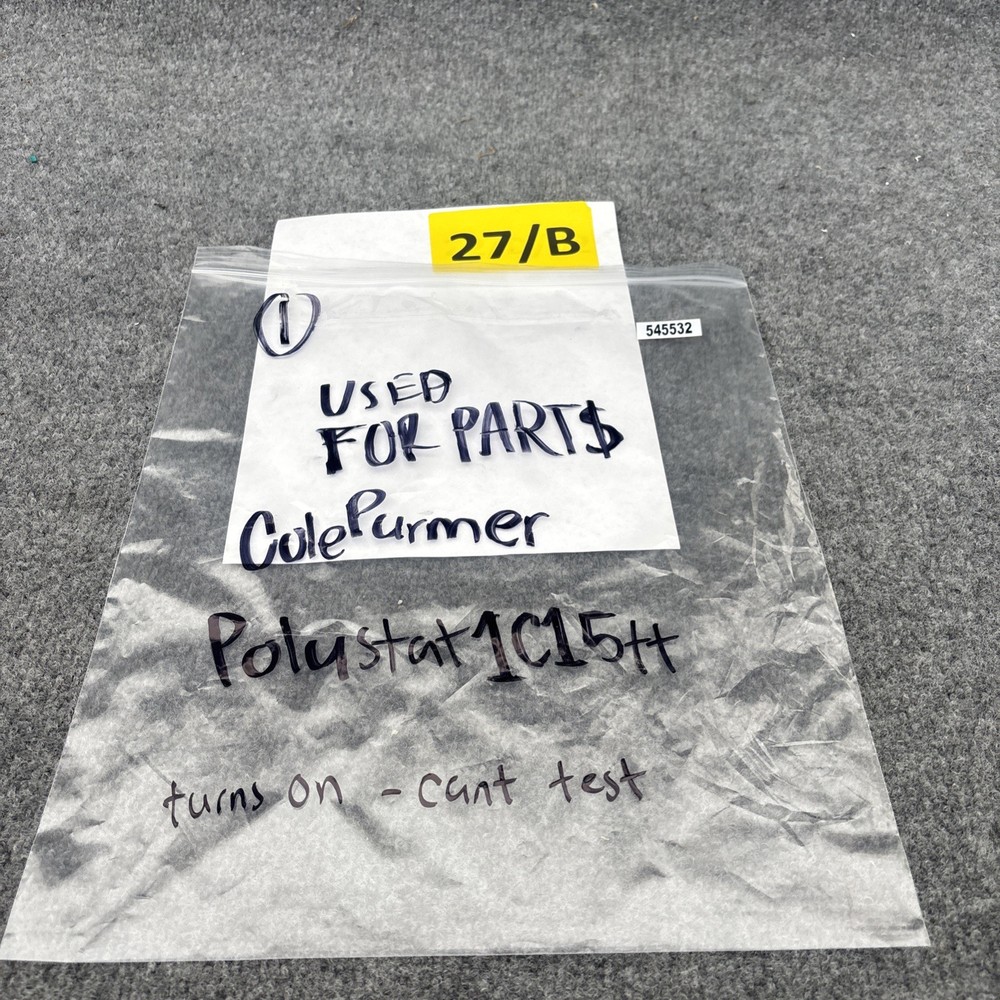 27/B
1
545532
USED
FOR PART$
Cole Parmer
Polystat 1C15tt
turns on - cant test